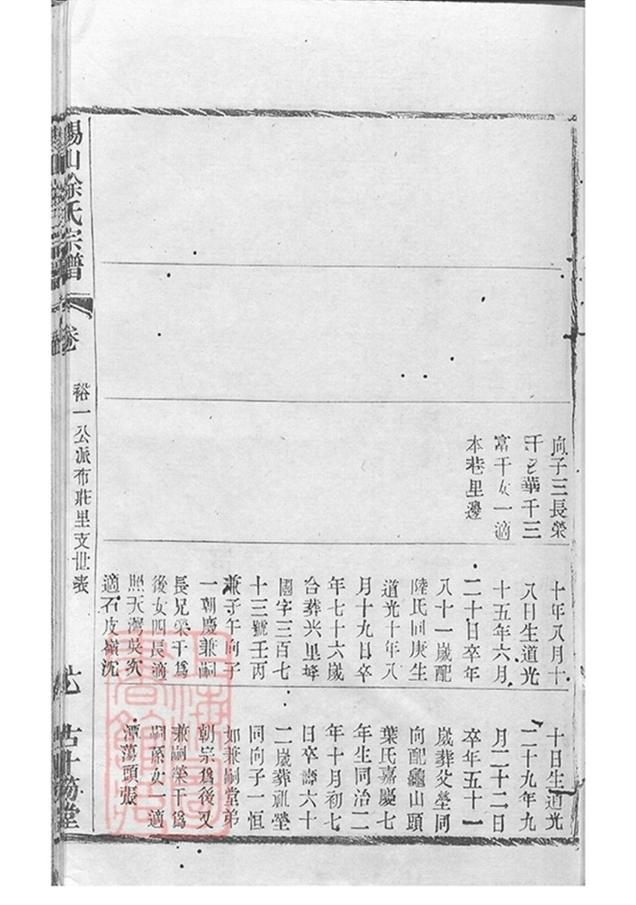 向子三長榮
干乞華干三
富干女一適
本巷里邊
十年八月十
八日生道光
十五年六月
二十日卒年
八十一歲配
陸氏同庚生
道光十年八
月十九日卒
年七十六歲
合葬興里塼
國字三百七
十三號壬丙
兼子午向子
一朝慶兼嗣
長兄榮干爲
後女四長適
照天灣吳次
適石皮嶺沈
十日生道光
二十九年九
月二十二日
卒年五十一
歲葬父塋同
向配龜山頭
葉氏嘉慶七
年生同治二
年十月初七
日卒壽六十
二歲葬祖塋
同向子一恒
如兼嗣堂弟
朝宗爲後又
兼嗣榮干爲
嗣孫女一適
潭蕩頭張
錫山徐氏宗譜
卷
裕一公派布莊里支世表